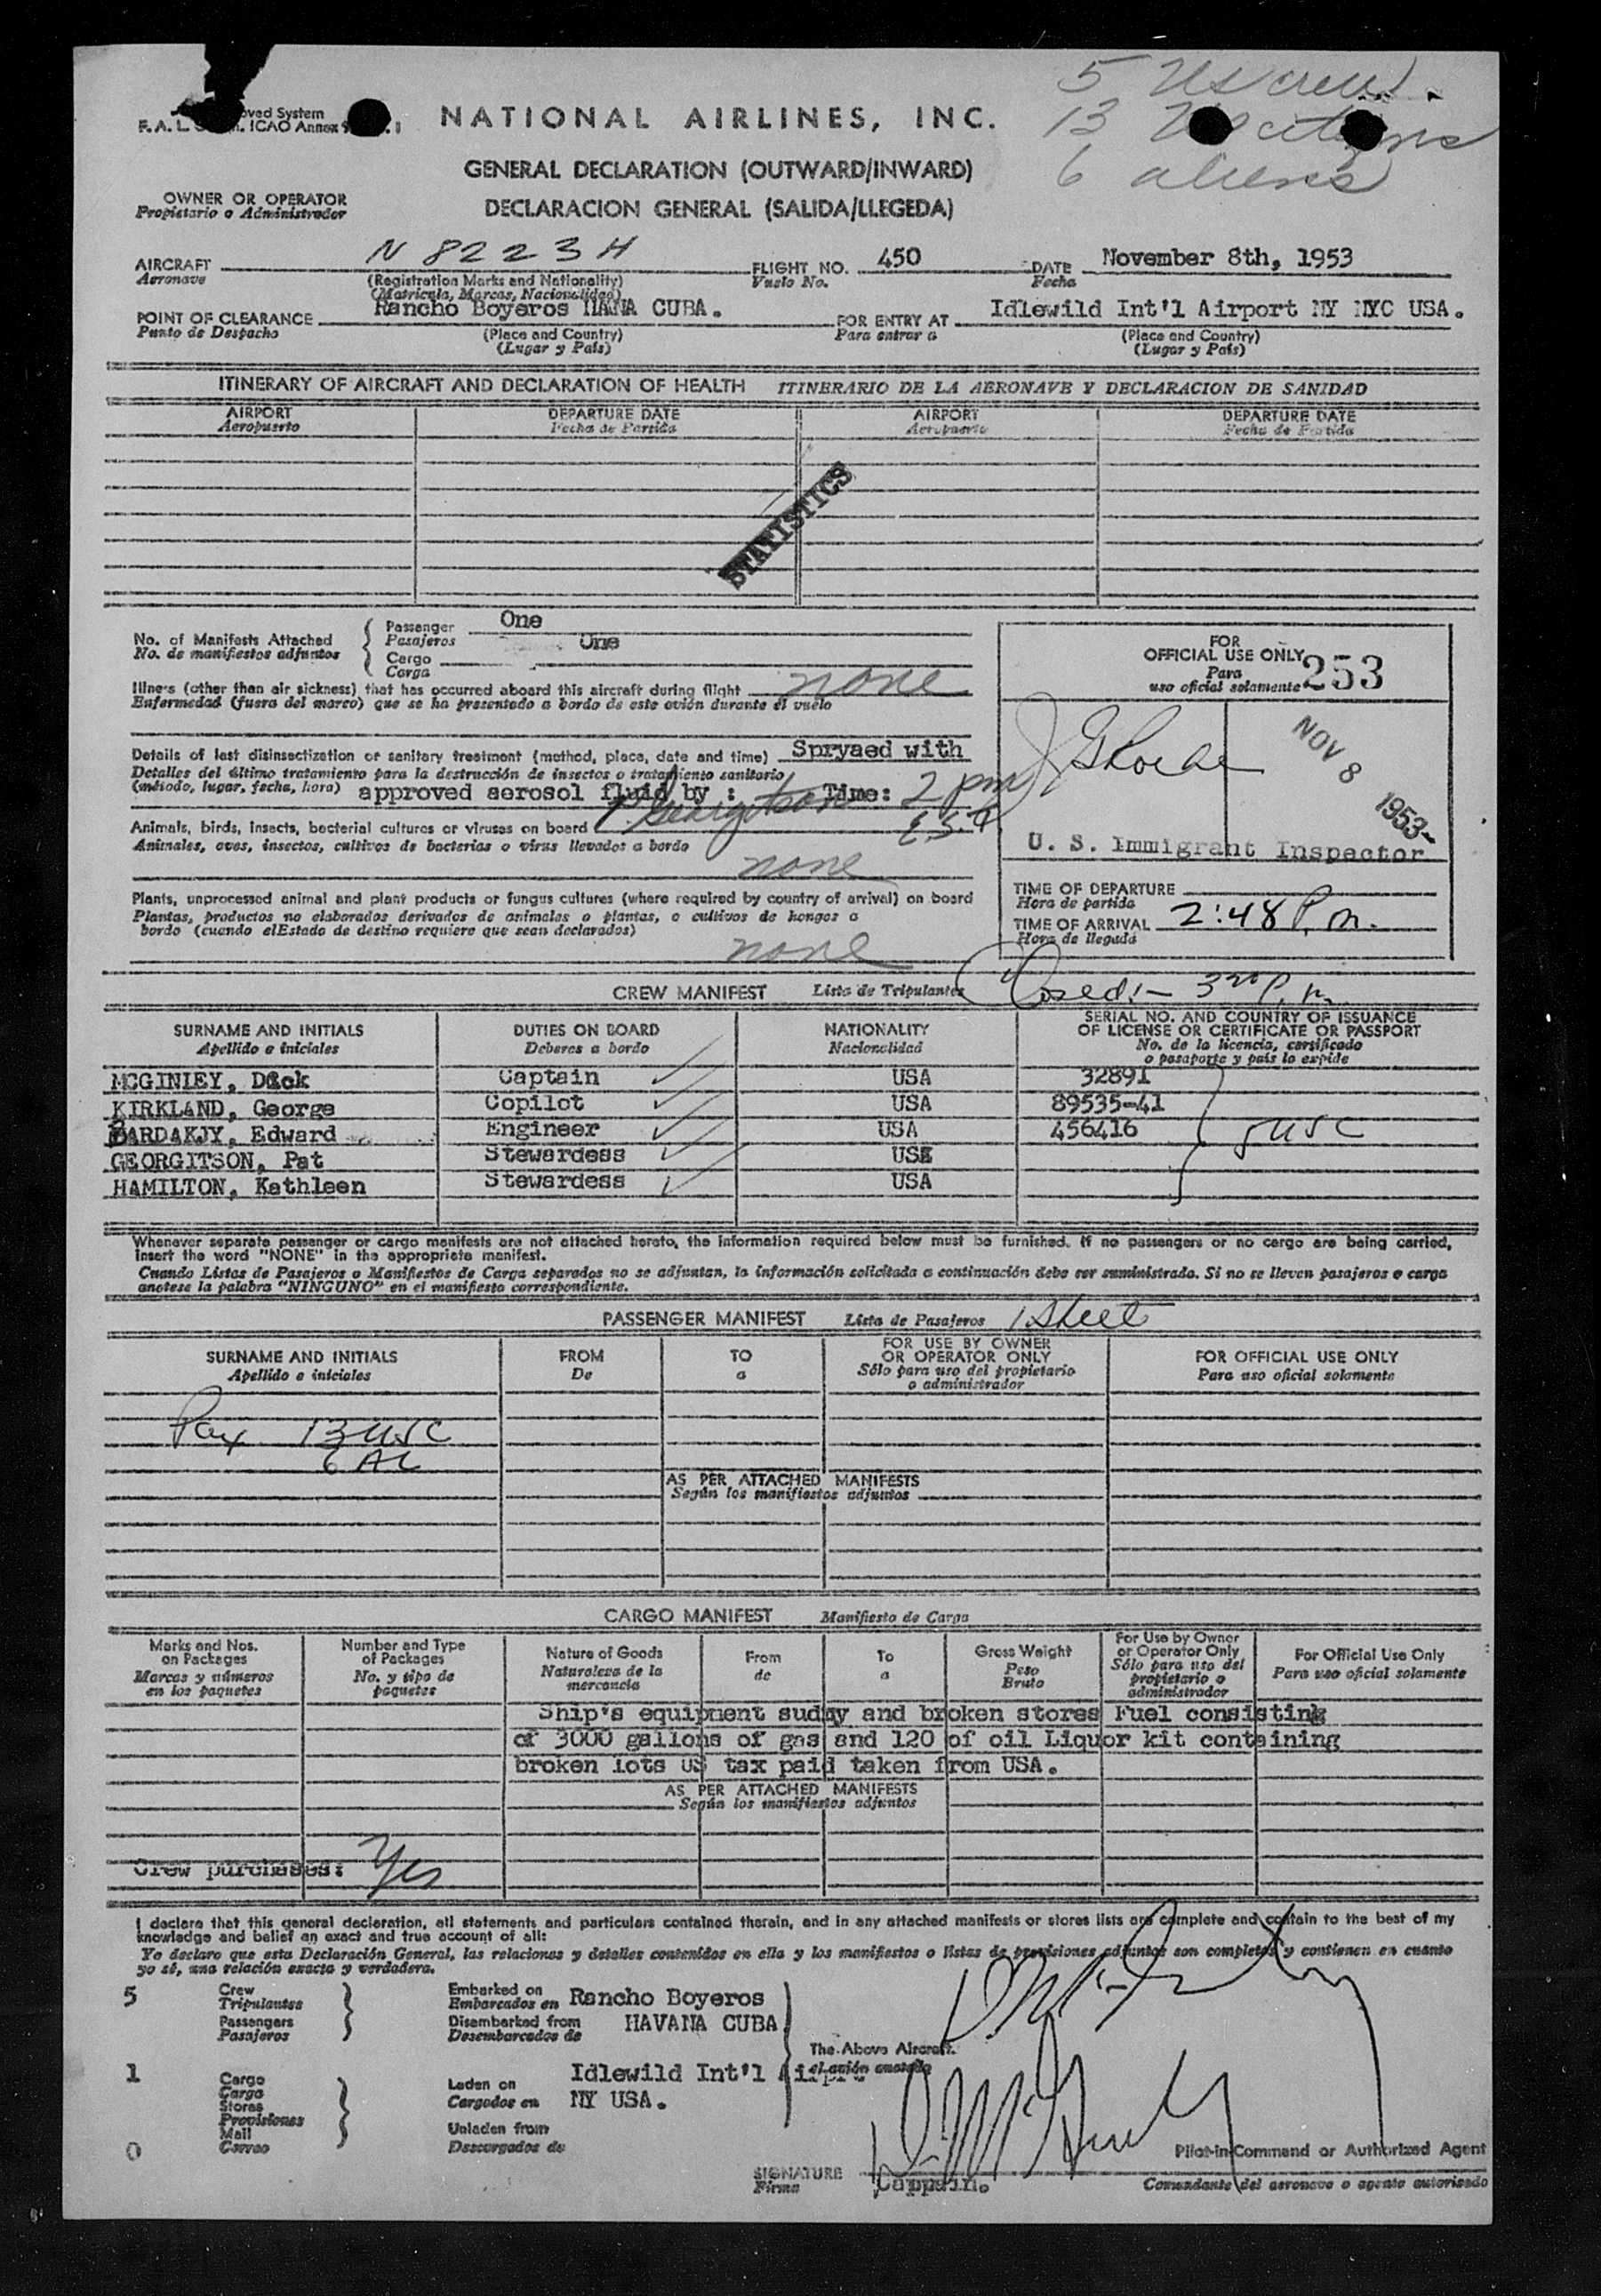 5 US crew
13 US citizens
6 aliens
oved System
F. A. L. ICAO Annex 9
NATIONAL AIRLINES, INC.
GENERAL DECLARATION (OUTWARD/INWARD)
OWNER OR OPERATOR
Propietario o Administrador
DECLARACION GENERAL (SALIDA/LLEGEDA)
AIRCRAFT N8223H FLIGHT NO. 450 DATE November 8th, 1953
Aeronave (Registration Marks and Nationality) Vuelo No. Fecha
(Matricula, Marcas, Nacionalidad)
POINT OF CLEARANCE Rancho Boyeros HANA CUBA. FOR ENTRY AT Idlewild Int'l Airport NY NYC USA.
Punto de Despacho (Place and Country) Para entrar a (Place and Country)
(Lugar y País) (Lugar y País)
ITINERARY OF AIRCRAFT AND DECLARATION OF HEALTH ITINERARIO DE LA AERONAVE Y DECLARACION DE SANIDAD
AIRPORT DEPARTURE DATE AIRPORT DEPARTURE DATE
Aeropuerto Fecha de Partida Aeropuerto Fecha de Partida
STATISTICS
No. of Manifests Attached Passenger One
No. de manifiestos adjuntos Pasajeros One
Cargo
Carga
Illness (other than air sickness) that has occurred aboard this aircraft during flight none
Enfermedad (fuera del mareo) que se ha presentado a bordo de este avión durante el vuelo
Details of last disinsectization or sanitary treatment (method, place, date and time) Spryaed with
Detalles del último tratamiento para la destrucción de insectos o tratamiento sanitario
(método, lugar, fecha, hora) approved aerosol fluid by : P. Georgitson Time: 2 pm
EST
Animals, birds, insects, bacterial cultures or viruses on board
Animales, aves, insectos, cultivos de bacterias o virus llevados a bordo
none
Plants, unprocessed animal and plant products or fungus cultures (where required by country of arrival) on board
Plantas, productos no elaborados derivados de animales o plantas, o cultivos de hongos a
bordo (cuando elEstado de destino requiere que sean declarados)
none
FOR
OFFICIAL USE ONLY 253
Para
uso oficial solamente
NOV 8 1953
U. S. Immigrant Inspector
TIME OF DEPARTURE
Hora de partida
TIME OF ARRIVAL 2:48 P.m.
Hora de llegada
Closed:- 3 20 P.m.
CREW MANIFEST Lista de Tripulantes
SURNAME AND INITIALS DUTIES ON BOARD NATIONALITY SERIAL NO. AND COUNTRY OF ISSUANCE
OF LICENSE OR CERTIFICATE OR PASSPORT
Apellido e iniciales Deberes a bordo Nacionalidad No. de la licencia, certificado
o pasaporte y país lo expide
MCGINLEY, Dick Captain USA 32891
KIRKLAND, George Copilot USA 89535-41
BARDAKJY, Edward Engineer USA 456416 5 USC
GEORGITSON, Pat Stewardess USA
HAMILTON, Kathleen Stewardess USA
Whenever separate passenger or cargo manifests are not attached hereto, the information required below must be furnished. If no passengers or no cargo are being carried,
insert the word "NONE" in the appropriate manifest.
Cuando Listas de Pasajeros o Manifiestos de Carga separados no se adjuntan, la información solicitada a continuación debe ser suministrada. Si no se lleven pasajeros o carga
anotese la palabra "NINGUNO" en el manifiesto correspondiente.
PASSENGER MANIFEST Lista de Pasajeros 1 Sheet
SURNAME AND INITIALS FROM TO FOR USE BY OWNER
OR OPERATOR ONLY FOR OFFICIAL USE ONLY
Apellido e iniciales De a Sólo para uso del propietario
o administrador Para uso oficial solamente
Pax 13 USC
6 AL
AS PER ATTACHED MANIFESTS
Según los manifiestos adjuntos
CARGO MANIFEST Manifiesto de Carga
Marks and Nos.
on Packages
Marcas y números
en los paquetes
Number and Type
of Packages
No. y tipo de
paquetes
Nature of Goods
Naturaleza de la
mercancia
From
de
To
a
Gross Weight
Peso
Bruto
For Use by Owner
or Operator Only
Sólo para uso del
propietario o
administrador
For Official Use Only
Para uso oficial solamente
Ship's equipment sudqy and broken stores Fuel consisting
of 3000 gallons of gas and 120 of oil Liquor kit containing
broken lots US tax paid taken from USA.
AS PER ATTACHED MANIFESTS
Según los manifiestos adjuntos
Crew purchases: Yes
I declare that this general declaration, all statements and particulars contained therein, and in any attached manifests or stores lists are complete and contain to the best of my
knowledge and belief an exact and true account of all:
Yo declaro que esta Declaración General, las relaciones y detalles contenidos en ella y los manifiestos o listas de provisiones adjuntos son completos y contienen en cuanto
yo sé, una relación exacta y verdadera.
5 Crew
Tripulantes
Passengers
Pasajeros
Embarked on
Embarcados en Rancho Boyeros
Disembarked from HAVANA CUBA
Desembarcados de
The Above Aircraft.
el avión anotado
1 Cargo
Carga
Stores
Provisiones
Mail
0 Correo
Idlewild Int'l Airprt
Laden on
Cargados en NY USA.
Unladen from
Descargados de
Pilot-in-Command or Authorized Agent
SIGNATURE
Firma Cappain. Comandante del aeronave o agente autorizado